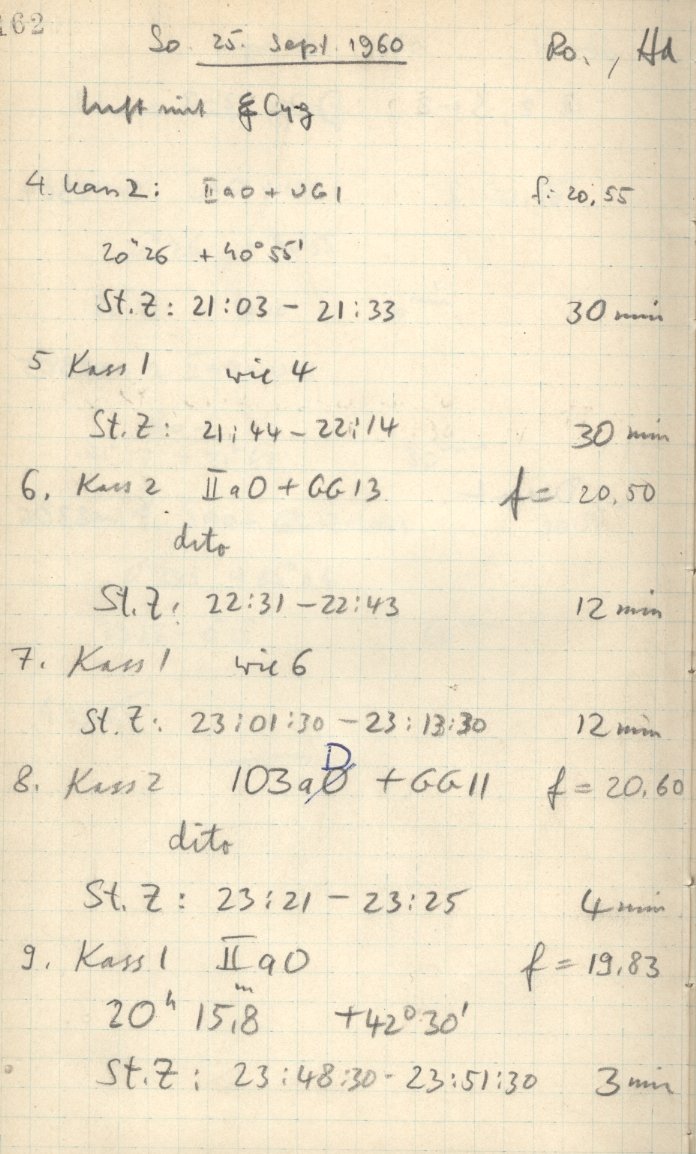 162
So. 25. Sept. 1960 Ro., Hd
Luft mit ξ Cyg
4. Kass 2: IIaO + UG1 f: 20,55
20h 26 +40° 55'
St.Z: 21:03 - 21:33 30 min
5 Kass 1 wie 4
St.Z: 21:44 - 22:14 30 min
6. Kass 2 IIaO + GG13 f = 20,50
dito
St.Z: 22:31 - 22:43 12 min
7. Kass 1 wie 6
St.Z: 23:01:30 - 23:13:30 12 min
8. Kass 2 103aD + GG11 f = 20,60
dito
St.Z: 23:21 - 23:25 4 min
9. Kass 1 IIaO f = 19,83
20h 15,8m +42° 30'
St.Z: 23:48:30 - 23:51:30 3 min